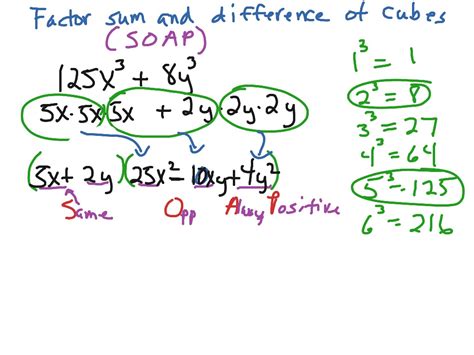 Factor sum and difference of cubes
(SOAP)
125x³ + 8y³
5x·5x 5x + 2y·2y·2y
(5x + 2y)(25x² - 10xy + 4y²)
Same Opp Alwy Positive
1³ = 1
2³ = 8
3³ = 27
4³ = 64
5³ = 125
6³ = 216